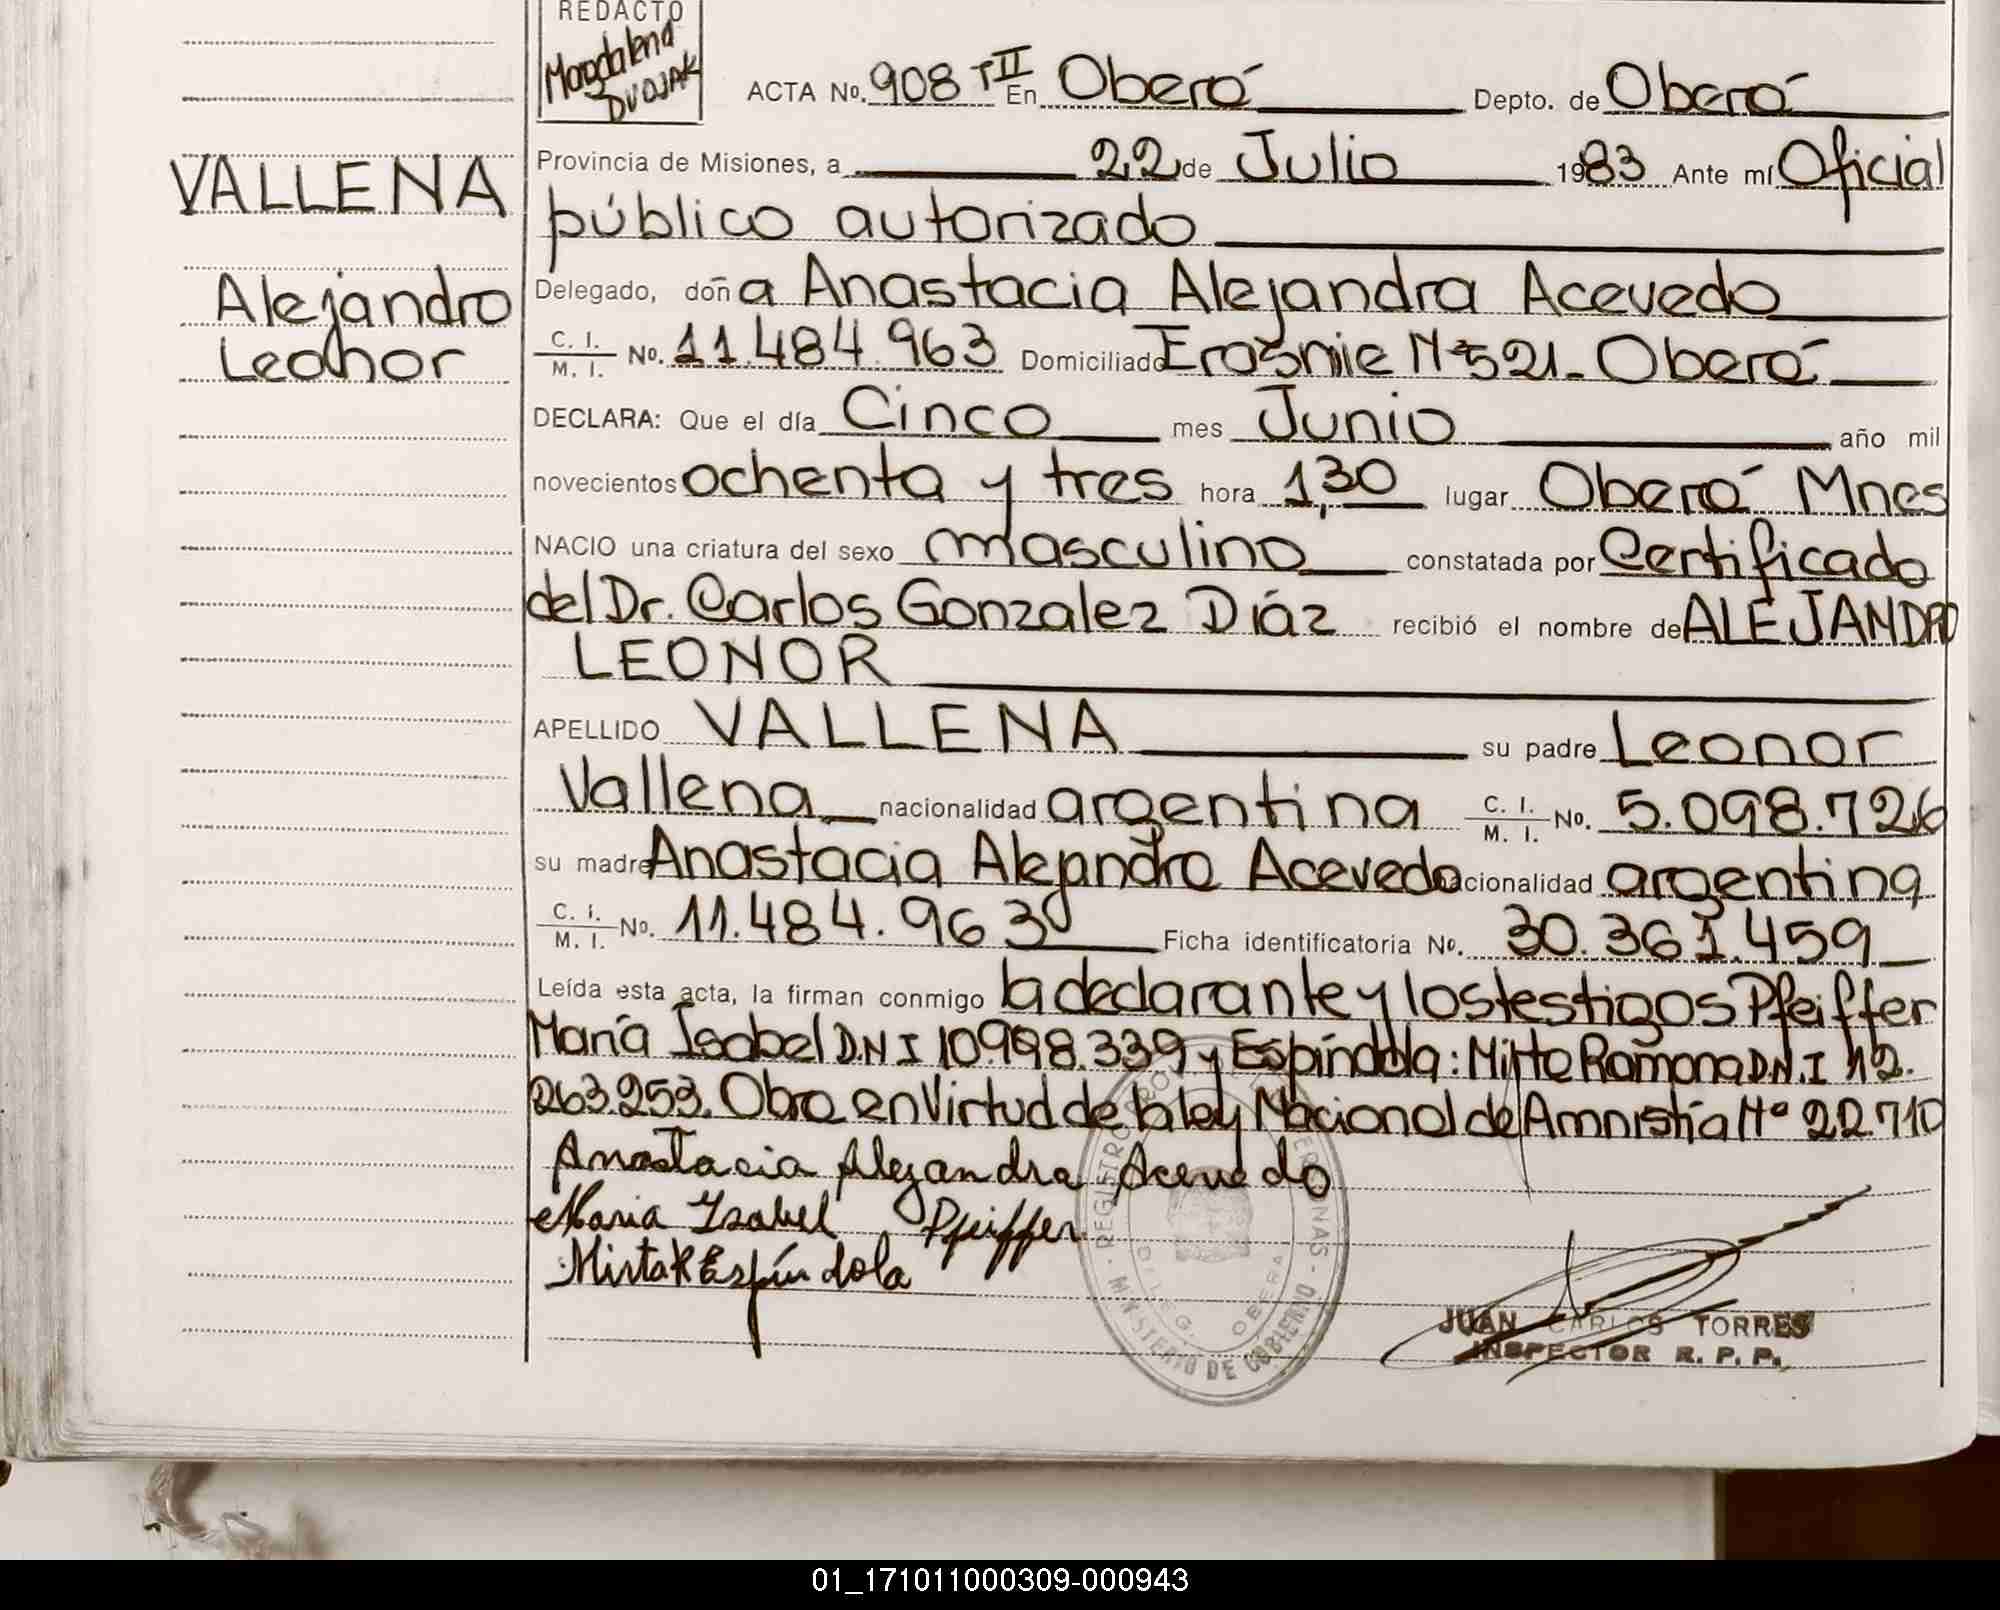 REDACTO
Magdalena
DVOJAK
ACTA No. 908 TII En Oberá Depto. de Oberá
Provincia de Misiones, a 22 de Julio 1983 Ante mí Oficial
público autorizado
VALLENA
Alejandro
Leonor
Delegado, doña Anastacia Alejandra Acevedo
C. I. / M. I. No. 11.484.963 Domiciliado N° 521 - Oberá
DECLARA: Que el día Cinco mes Junio año mil
novecientos ochenta y tres hora 1,30 lugar Oberá Mnes
NACIO una criatura del sexo masculino constatada por Certificado
del Dr. Carlos Gonzalez Díaz recibió el nombre de ALEJANDRO
LEONOR
APELLIDO VALLENA su padre Leonor
Vallena nacionalidad argentina C. I. / M. I. No. 5.098.726
su madre Anastacia Alejandra Acevedo nacionalidad argentina
C. I. / M. I. No. 11.484.963 Ficha identificatoria No. 30.361.459
Leída esta acta, la firman conmigo la declarante y los testigos Pfeiffer
María Isabel D.N.I 10.998.339 y Espíndola: Mirta Ramona D.N.I 12.
263.253. Obra en Virtud de la ley Nacional de Amnistía N° 22710
Anastacia Alejandra Acevedo
Maria Isabel Pfeiffer
Mirta R Espíndola
MINISTERIO DE GOBIERNO
DELEG. OBERA
JUAN CARLOS TORRES
INSPECTOR R. P. P.
01_171011000309-000943